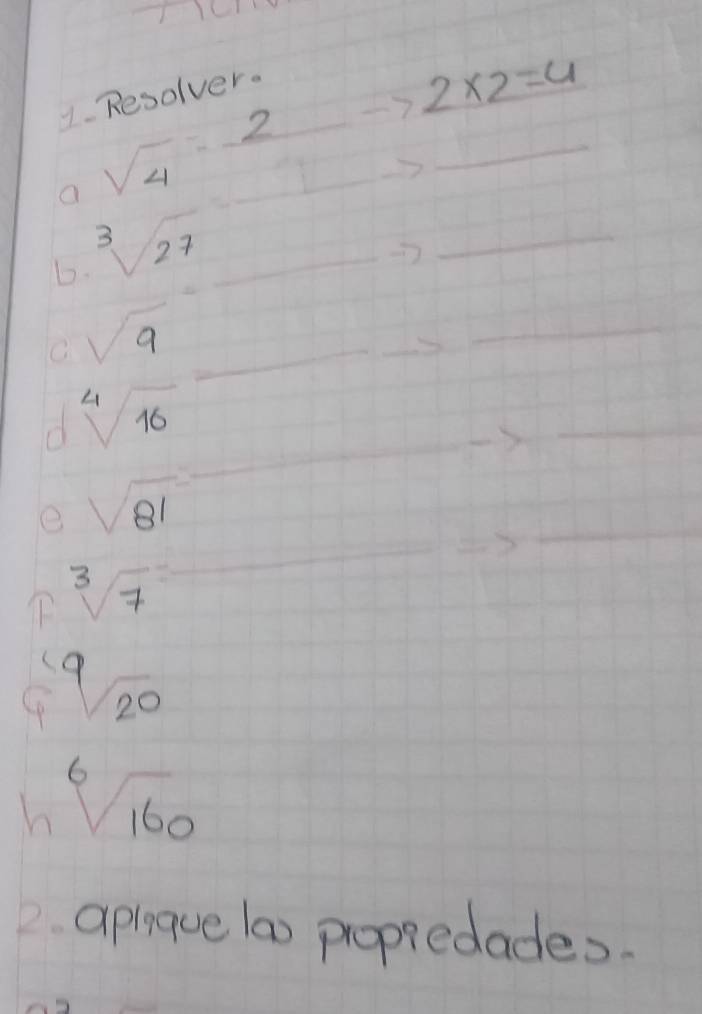 1- Resolver.
a √4 = 2 → 2×2=4
b. ³√27 = →
c √9 = →
d ⁴√16 →
e √81 = →
F ³√7 = →
G ⁹√20
h ⁶√160
2. aplique las propiedades.